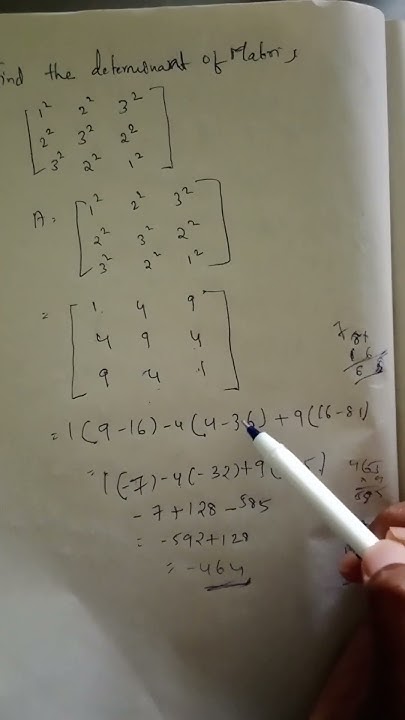 the determinant of Matrix
1² 2² 3²
2² 3² 2²
3² 2² 1²
A = 1² 2² 3²
2² 3² 2²
3² 2² 1²
= 1 4 9
4 9 4
9 4 1
= 1(9-16)-4(4-36)+9(16-81)
= 1(-7)-4(-32)+9(
-7+128-585
= -592+128
= -464